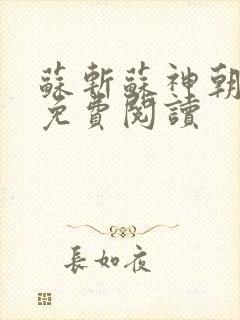 蘇斬蘇神朝
免費閱讀
長如夜